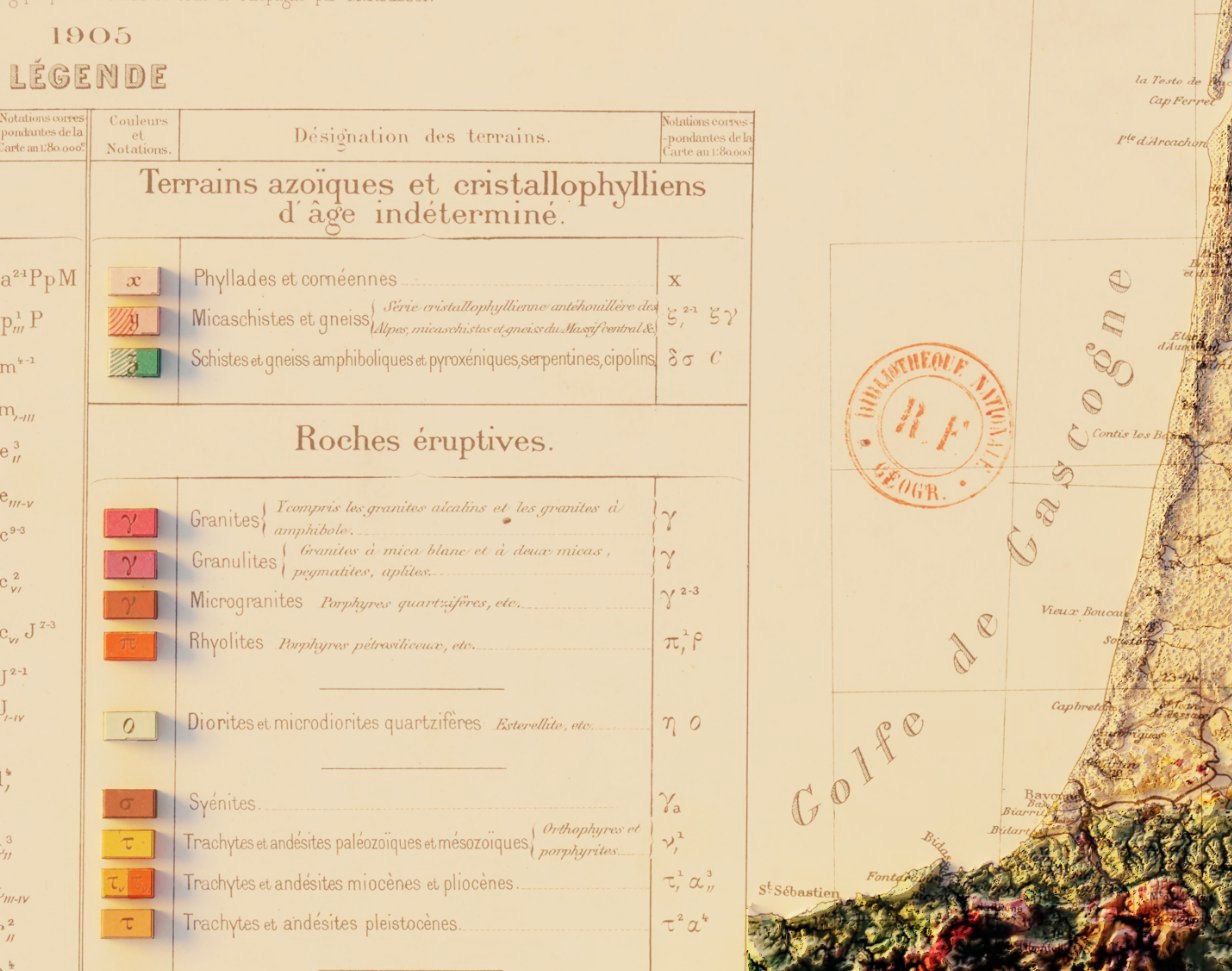 1905
LÉGENDE
Notations corres
pondantes de la
Carte au 1:80.000e
Couleurs
et
Notations.
Désignation des terrains.
Notations corres-
-pondantes de la
Carte au 1:80.000e
Terrains azoïques et cristallophylliens
d'âge indéterminé.
a²⁻¹PpM
x Phyllades et cornéennes x
p¹ P
y Micaschistes et gneiss { Série cristallophyllienne antéhouillère des
Alpes, micaschistes et gneiss du Massif central &. ζ, ²⁻¹ ζγ
m⁴⁻¹
Schistes et gneiss amphiboliques et pyroxéniques, serpentines, cipolins, δ σ C
m I-III
e³ II
Roches éruptives.
e III-V
c⁹⁻³
γ Granites { Y compris les granites alcalins et les granites à
amphibole. γ
c² VI
γ Granulites { Granites à mica blanc et à deux micas,
pegmatites, aplites. γ
γ Microgranites Porphyres quartzifères, etc. γ²⁻³
J⁷⁻³
π Rhyolites Porphyres pétrosiliceux, etc. π,¹ρ
J²⁻¹
J I-IV
O Diorites et microdiorites quartzifères Esterellite, etc. η O
σ Syénites γa
τ Trachytes et andésites paléozoïques et mésozoïques { Orthophyres et
porphyrites ν,¹
τ Trachytes et andésites miocènes et pliocènes. τ,¹ α,,³
III-IV
τ Trachytes et andésites pleistocènes. τ² α⁴
la Teste de
Cap Ferret
Pte d'Arcachon
BIBLIOTHEQUE NATIONALE
R.F.
GÉOGR.
Golfe de Gascogne
Contis les
Vieux Boucau
Capbreton
Bayonne
Biarri
Bidart
Bidas
Fontar
St Sébastien